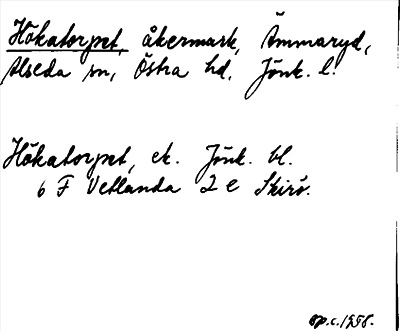 Hökatorpet, åkermark, Ämmaryd,
Alseda sn, Östra hd, Jönk. l.
Hökatorpet, ek. Jönk. bl.
6 F Vetlanda 2 e Skirö.
op.c. 1956.